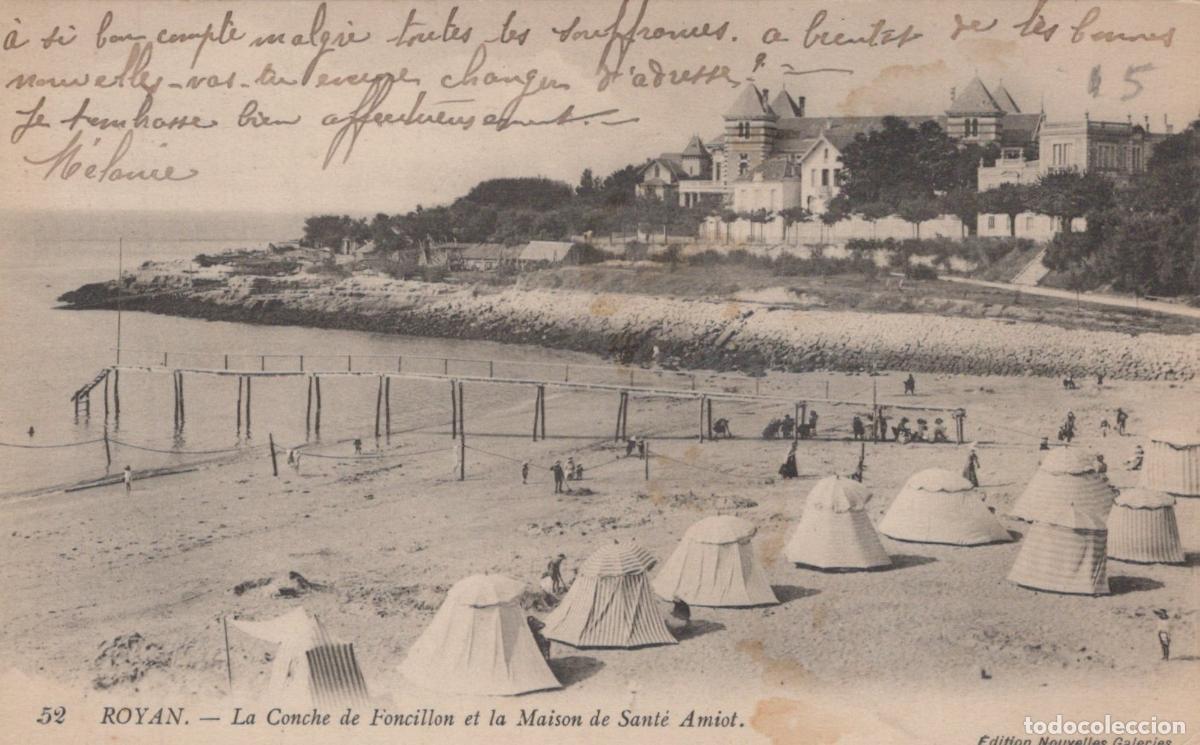 à si bon compte malgré toutes tes souffrances. a bientot de tes bonnes
nouvelles - vas-tu encore changer d'adresse ?
Je t'embrasse bien affectueusement. -
Mélanie
15
52 ROYAN. — La Conche de Foncillon et la Maison de Santé Amiot.
Édition Nouvelles Galeries
todocoleccion